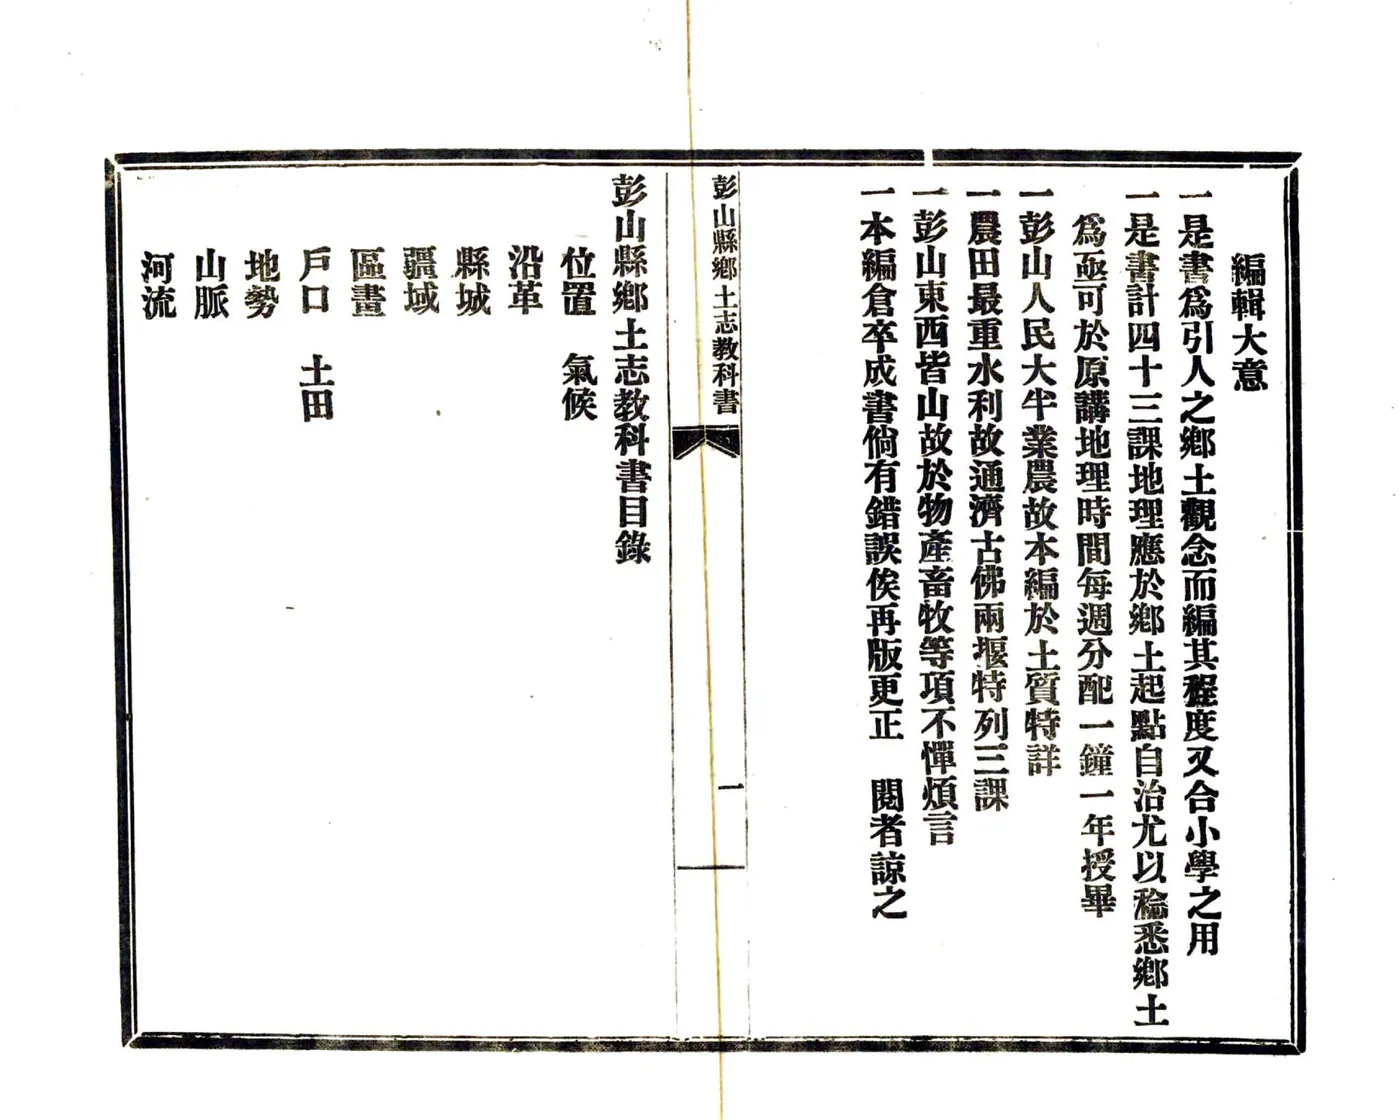 編輯大意
一是書爲引人之鄉土觀念而編其程度又合小學之用
一是書計四十三課地理應於鄉土起點自治尤以稔悉鄉土
爲亟可於原講地理時間每週分配一鐘一年授畢
一彭山人民大半業農故本編於土質特詳
一農田最重水利故通濟古佛兩堰特列三課
一彭山東西皆山故於物產畜牧等項不憚煩言
一本編倉卒成書倘有錯誤俟再版更正　閱者諒之
彭山縣鄉土志教科書
一
彭山縣鄉土志教科書目錄
位置　氣候
沿革
縣城
疆域
區畫
戶口　土田
地勢
山脈
河流